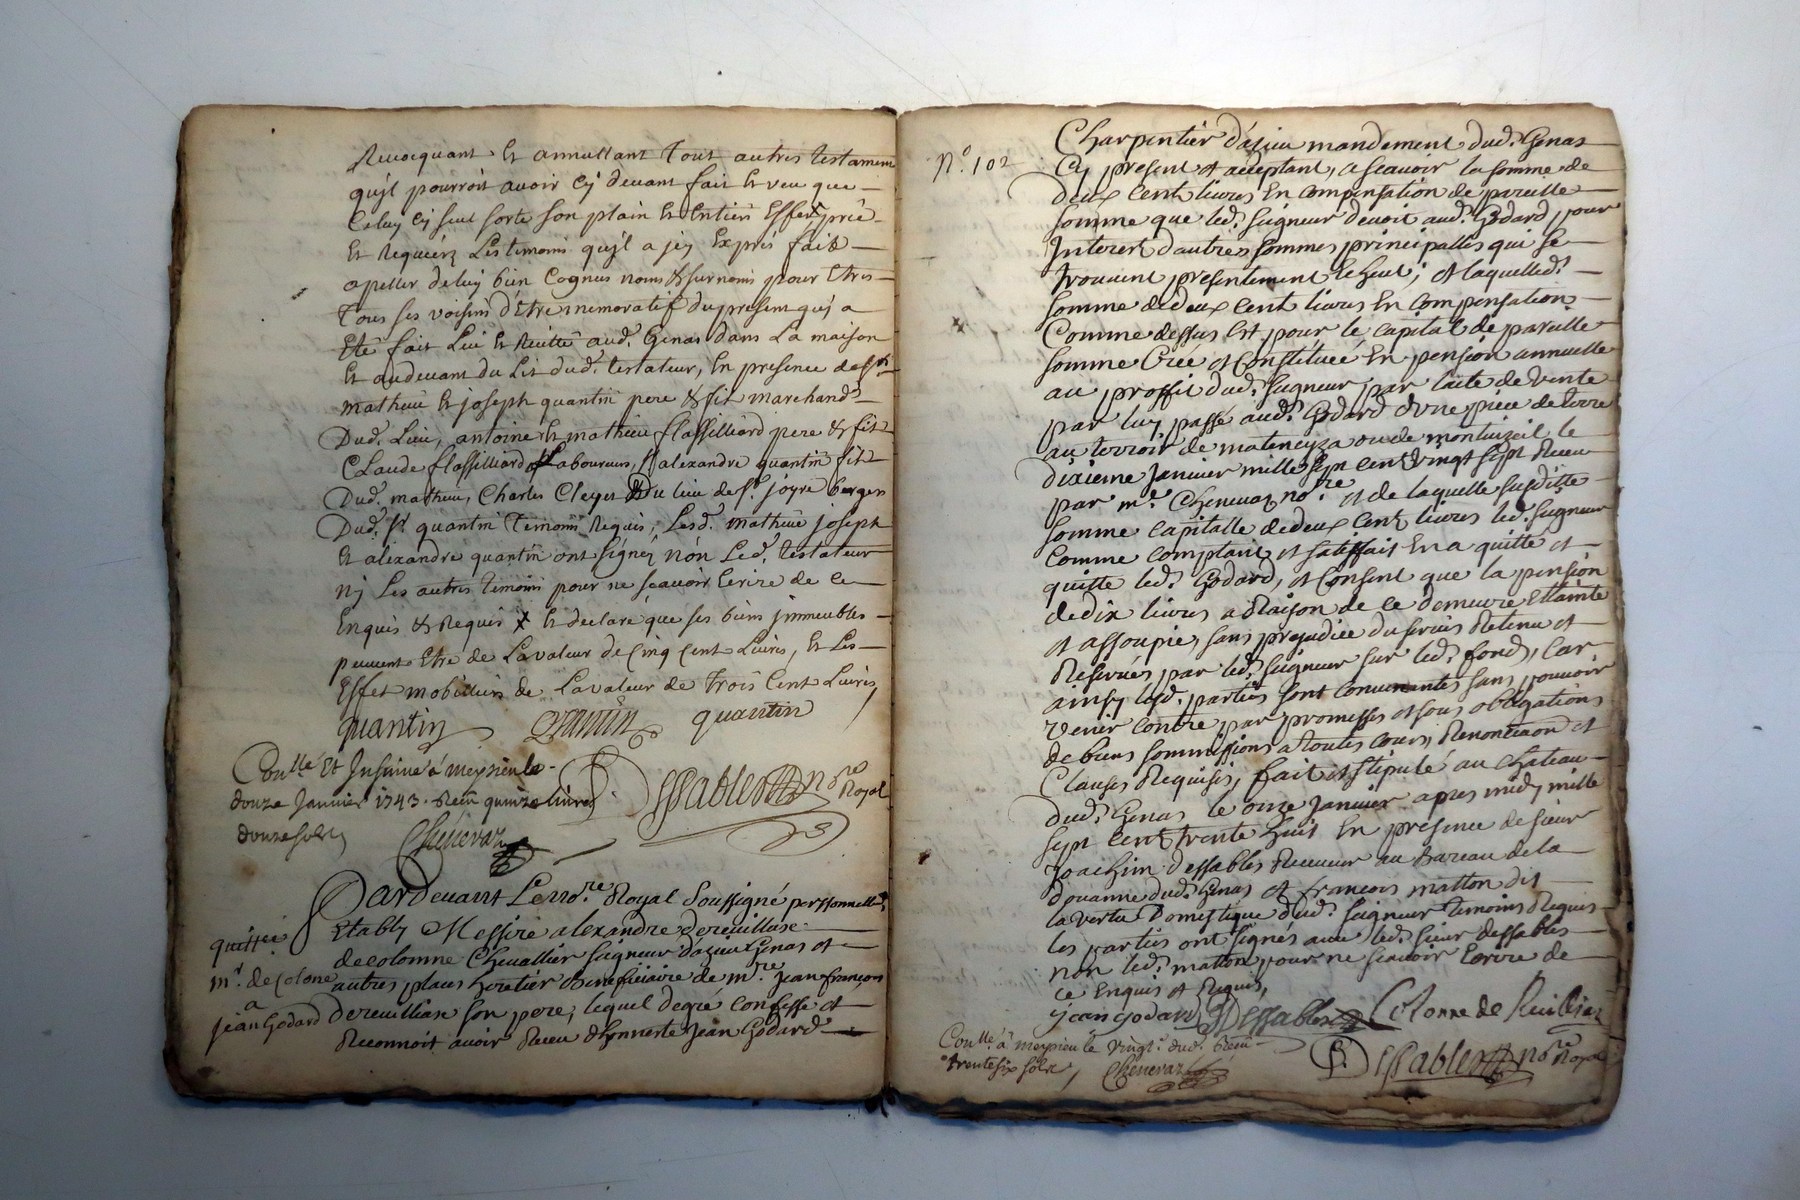 Revocquant Et annullant Tout autres testamens
qujl pourroit avoir cÿ devant fait Et veu que
Celuy cÿ seul sorte son plain Et Entiers Effet, priè
Et Requiérz Les temoins qujl a jcy Exprés fait
apeller deluy bien Cognus noms & surnoms pour Etres
Tous ses voisins d'Etre memoratif du present qujl a
Eté fait Lue Et Recitté aud. Genas dans La maison
Et audevant du Lit dud. testateur, En presence de
mathieu Et joseph quantin pere & fils marchands
Dud. Lieu, antoine Et mathieu flassilliard pere & fils
Claude flassilliard Laboureurs, alexandre quantin fils
Dud. mathieu, Charles Cleyet Du lieu de St. joyre berger
Dud. Sr. quantin Temoins Requis; Lesd. mathieu joseph
Et alexandre quantin ont signéz nòn Led. testateur
nj Les autres temoins pour ne scavoir Ecrire de ce
Enquis & Requis X Et declaré que ses biens jmmeubles
peuvent Etre de Lavaleur de Cinq Cent Livres, Et Les
Effet mobiliers de Lavaleur de trois Cent Livres,
quantin quantin quantin
Conllé Et Insinué á Meyzieu le
douze Janvier 1743. Receu quinze livres
douze sols
Chenevaz
Dessables nore Royal
quittce
mr. de Colone
a
jean Godard
Pardevant Le nore. Royal Soussigné personnellt
Etably Messire alexandre dereuilliase
decolomne Chevallier Seigneur d'azieu Genas et
autres places heretier Beneficiaire de mre. jean françois
Dereuilliase son pere, lequel degré confesse et
Reconnoit avoir Receu d'honneste Jean Godard
No. 102
Charpentier d'azieu mandement dud. Genas
Cy present et acceptant, a scavoir la somme de
deux cent livres En compensation de pareille
somme que led. seigneur devoit aud. Godard pour
Interest d'autres sommes principalles qui se
trouvent presentement Echeut; et laquelled.
somme dedeux cent livres En compensation
Comme dessus Est pour le capital de pareille
somme Crée et Constituée En pension annuelle
au proffit dud. seigneur par l'acte de vente
par luy passé aud. Godard d'une piece de terre
au terroir de matencyza ou de montuizeil le
dixieme Janvier mille sept cent vingt sept Receu
par me. Chenevaz nore et de laquelle susditte
somme capitalle dedeux cent livres led. seigneur
Comme comptant et satisfait En a quitté et
quitte led. Godard, et Consent que la pension
dedix livres a Raison de ce demeure Etainte
et assoupie, sans prejudice du servis Retenu et
Reservés par led. seigneur sur led. fond, Car
ainsy lesd. parties sont convenantes sans pouvoir
venir contre par promesses et sous obligations
de biens sommissions a toutes cours, Renontiaon et
Clauses Requises, fait et stipulé au chateau
dud. Genas le onze Janvier apres midy mille
sept cent trente huit En presence de sieur
Joachim dessables Receveur au Bureau de la
douanne dud. Genas et francois matton dit
la vertu Domestique dud. seigneur temoins Requis
les parties ont signés avec led. sieur dessables
non led. matton pour ne scavoir Ecrire de
ce Enquis et Requis,
jean godard Dessables Colonne de Reuilliaz
Conllé. á meyzieu le vingt. dud. Receu
trente six sols, Chenevaz
Dessables nore Royal